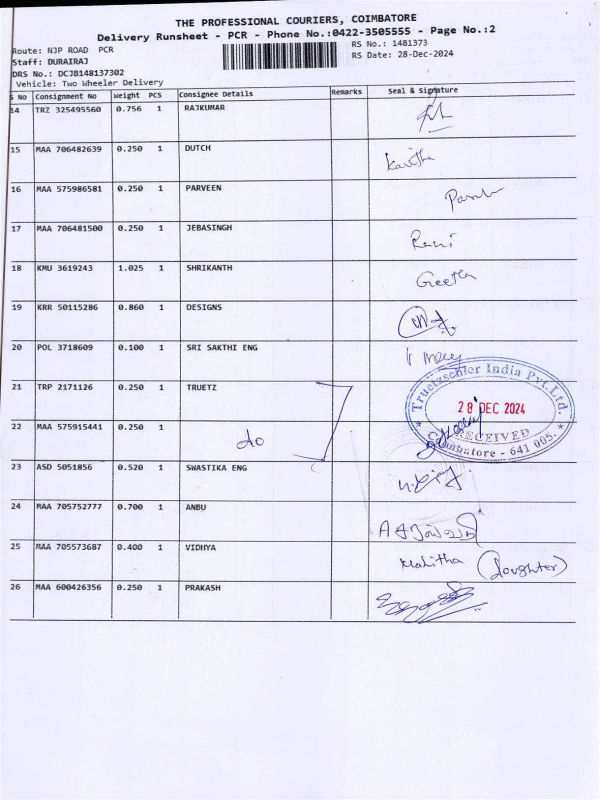 THE PROFESSIONAL COURIERS, COIMBATORE
Delivery Runsheet - PCR - Phone No.:0422-3505555 - Page No.:2
Route: NJP ROAD PCR
RS No.: 1481373
Staff: DURAIRAJ
RS Date: 28-Dec-2024
DRS No.: DCJB148137302
Vehicle: Two Wheeler Delivery
S No Consignment No Weight PCS Consignee Details Remarks Seal & Signature
14 TRZ 325495560 0.756 1 RAJKUMAR
15 MAA 706482639 0.250 1 DUTCH Kavitha
16 MAA 575986581 0.250 1 PARVEEN
17 MAA 706481500 0.250 1 JEBASINGH Rani
18 KMU 3619243 1.025 1 SHRIKANTH Geetha
19 KRR 50115286 0.860 1 DESIGNS
20 POL 3718609 0.100 1 SRI SAKTHI ENG
21 TRP 2171126 0.250 1 TRUETZ
Truetzschler India Pvt.Ltd.
28 DEC 2024
RECEIVED
Coimbatore - 641 005.
22 MAA 575915441 0.250 1 do
23 ASD 5051856 0.520 1 SWASTIKA ENG
24 MAA 705752777 0.700 1 ANBU
25 MAA 705573687 0.400 1 VIDHYA Malitha (Doughter)
26 MAA 600426356 0.250 1 PRAKASH